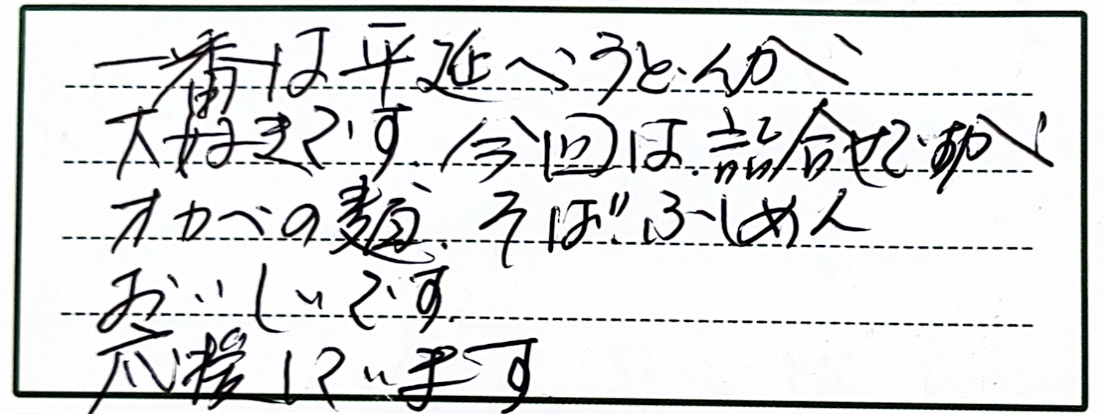 一番は平延べうどんが
大好きです。今回は、詰合せですが
オカベの麺、そば、ふしめん
おいしいです。
応援しています